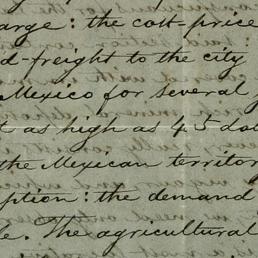 arge: the cost-price
d-freight to the city
Mexico for several
t as high as 45 dol
the Mexican territory
ption: the demand
le. The agricultural